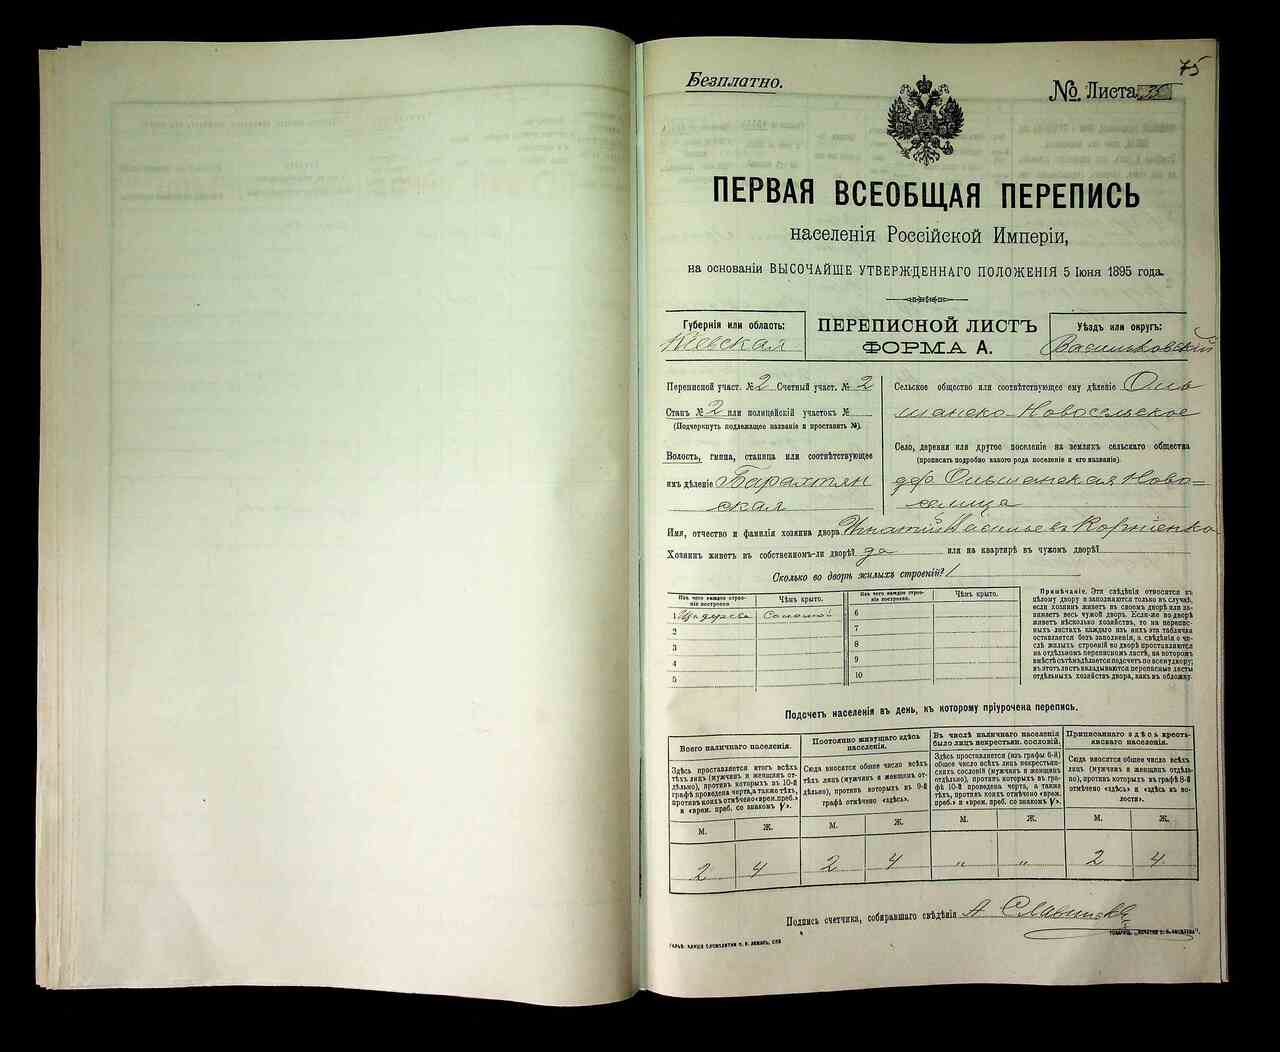 75
Безплатно.
№ Листа 35
ПЕРВАЯ ВСЕОБЩАЯ ПЕРЕПИСЬ
населенія Россійской Имперіи,
на основаніи ВЫСОЧАЙШЕ УТВЕРЖДЕННАГО ПОЛОЖЕНІЯ 5 Іюня 1895 года.
Губернія или область:
Кіевская
ПЕРЕПИСНОЙ ЛИСТЪ
ФОРМА А.
Уѣздъ или округъ:
Васильковскій
Переписной участ. № 2 Счетный участ. № 2
Станъ № 2 или полицейскій участокъ №
(Подчеркнуть подлежащее названіе и проставить №).
Волость, гмина, станица или соотвѣтствующее
имъ дѣленіе Барахтян
ская
Сельское общество или соотвѣтствующее ему дѣленіе Оль
шанско-Новосельское
Село, деревня или другое поселеніе на земляхъ сельскаго общества
(прописать подробно какого рода поселеніе и его названіе).
дер. Ольшанская Ново=
селица
Имя, отчество и фамилія хозяина двора Игнатій Васильевъ Корніенко
Хозяинъ живетъ въ собственномъ-ли дворѣ? да или на квартирѣ въ чужомъ дворѣ?
Сколько во дворѣ жилыхъ строеній? 1
Изъ чего каждое строе-
ніе построено
Чѣмъ крыто.
Изъ чего каждое строе-
ніе построено.
Чѣмъ крыто.
1 Изъ дерева Соломой
2
3
4
5
6
7
8
9
10
Примѣчаніе. Эти свѣдѣнія относятся къ
цѣлому двору и заполняются только въ случаѣ,
если хозяинъ живетъ въ своемъ дворѣ или за-
нимаетъ весь чужой дворъ. Если-же во дворѣ
живетъ нѣсколько хозяйствъ, то на перепис-
ныхъ листахъ каждаго изъ нихъ эта табличка
оставляется безъ заполненія, а свѣдѣнія о чи-
слѣ жилыхъ строеній во дворѣ проставляются
на отдѣльномъ переписномъ листѣ, на которомъ
вмѣстѣ съ тѣмъ дѣлается подсчетъ по всему двору;
въ этотъ листъ вкладываются переписные листы
отдѣльныхъ хозяйствъ двора, какъ въ обложку.
Подсчетъ населенія въ день, къ которому пріурочена перепись.
Всего наличнаго населенія.
Здѣсь проставляется итогъ всѣхъ
лицъ (мужчинъ и женщинъ от-
дѣльно), противъ которыхъ въ 10-й
графѣ проведена черта, а также тѣхъ,
противъ коихъ отмѣчено «врем. преб.»
и «врем. преб. со знакомъ V».
Постоянно живущаго здѣсь
населенія.
Сюда вносится общее число всѣхъ
тѣхъ лицъ (мужчинъ и женщинъ от-
дѣльно), противъ которыхъ въ 9-й
графѣ отмѣчено «здѣсь».
Въ числѣ наличнаго населенія
было лицъ некрестьян. сословій.
Здѣсь проставляется (изъ графы 6-й)
общее число всѣхъ лицъ некрестьян-
скихъ сословій (мужчинъ и женщинъ
отдѣльно), противъ которыхъ въ гра-
фѣ 10-й проведена черта, а также
тѣхъ, противъ коихъ отмѣчено «врем.
преб.» и «врем. преб. со знакомъ V».
Приписаннаго здѣсь кресть-
янскаго населенія.
Сюда вносится общее число всѣхъ
лицъ (мужчинъ и женщинъ отдѣль-
но), противъ которыхъ въ графѣ 8-й
отмѣчено «здѣсь» и «здѣсь въ во-
лости».
М. Ж. М. Ж. М. Ж. М. Ж.
2 4 2 4 „ „ 2 4
Подпись счетчика, собиравшаго свѣдѣнія А